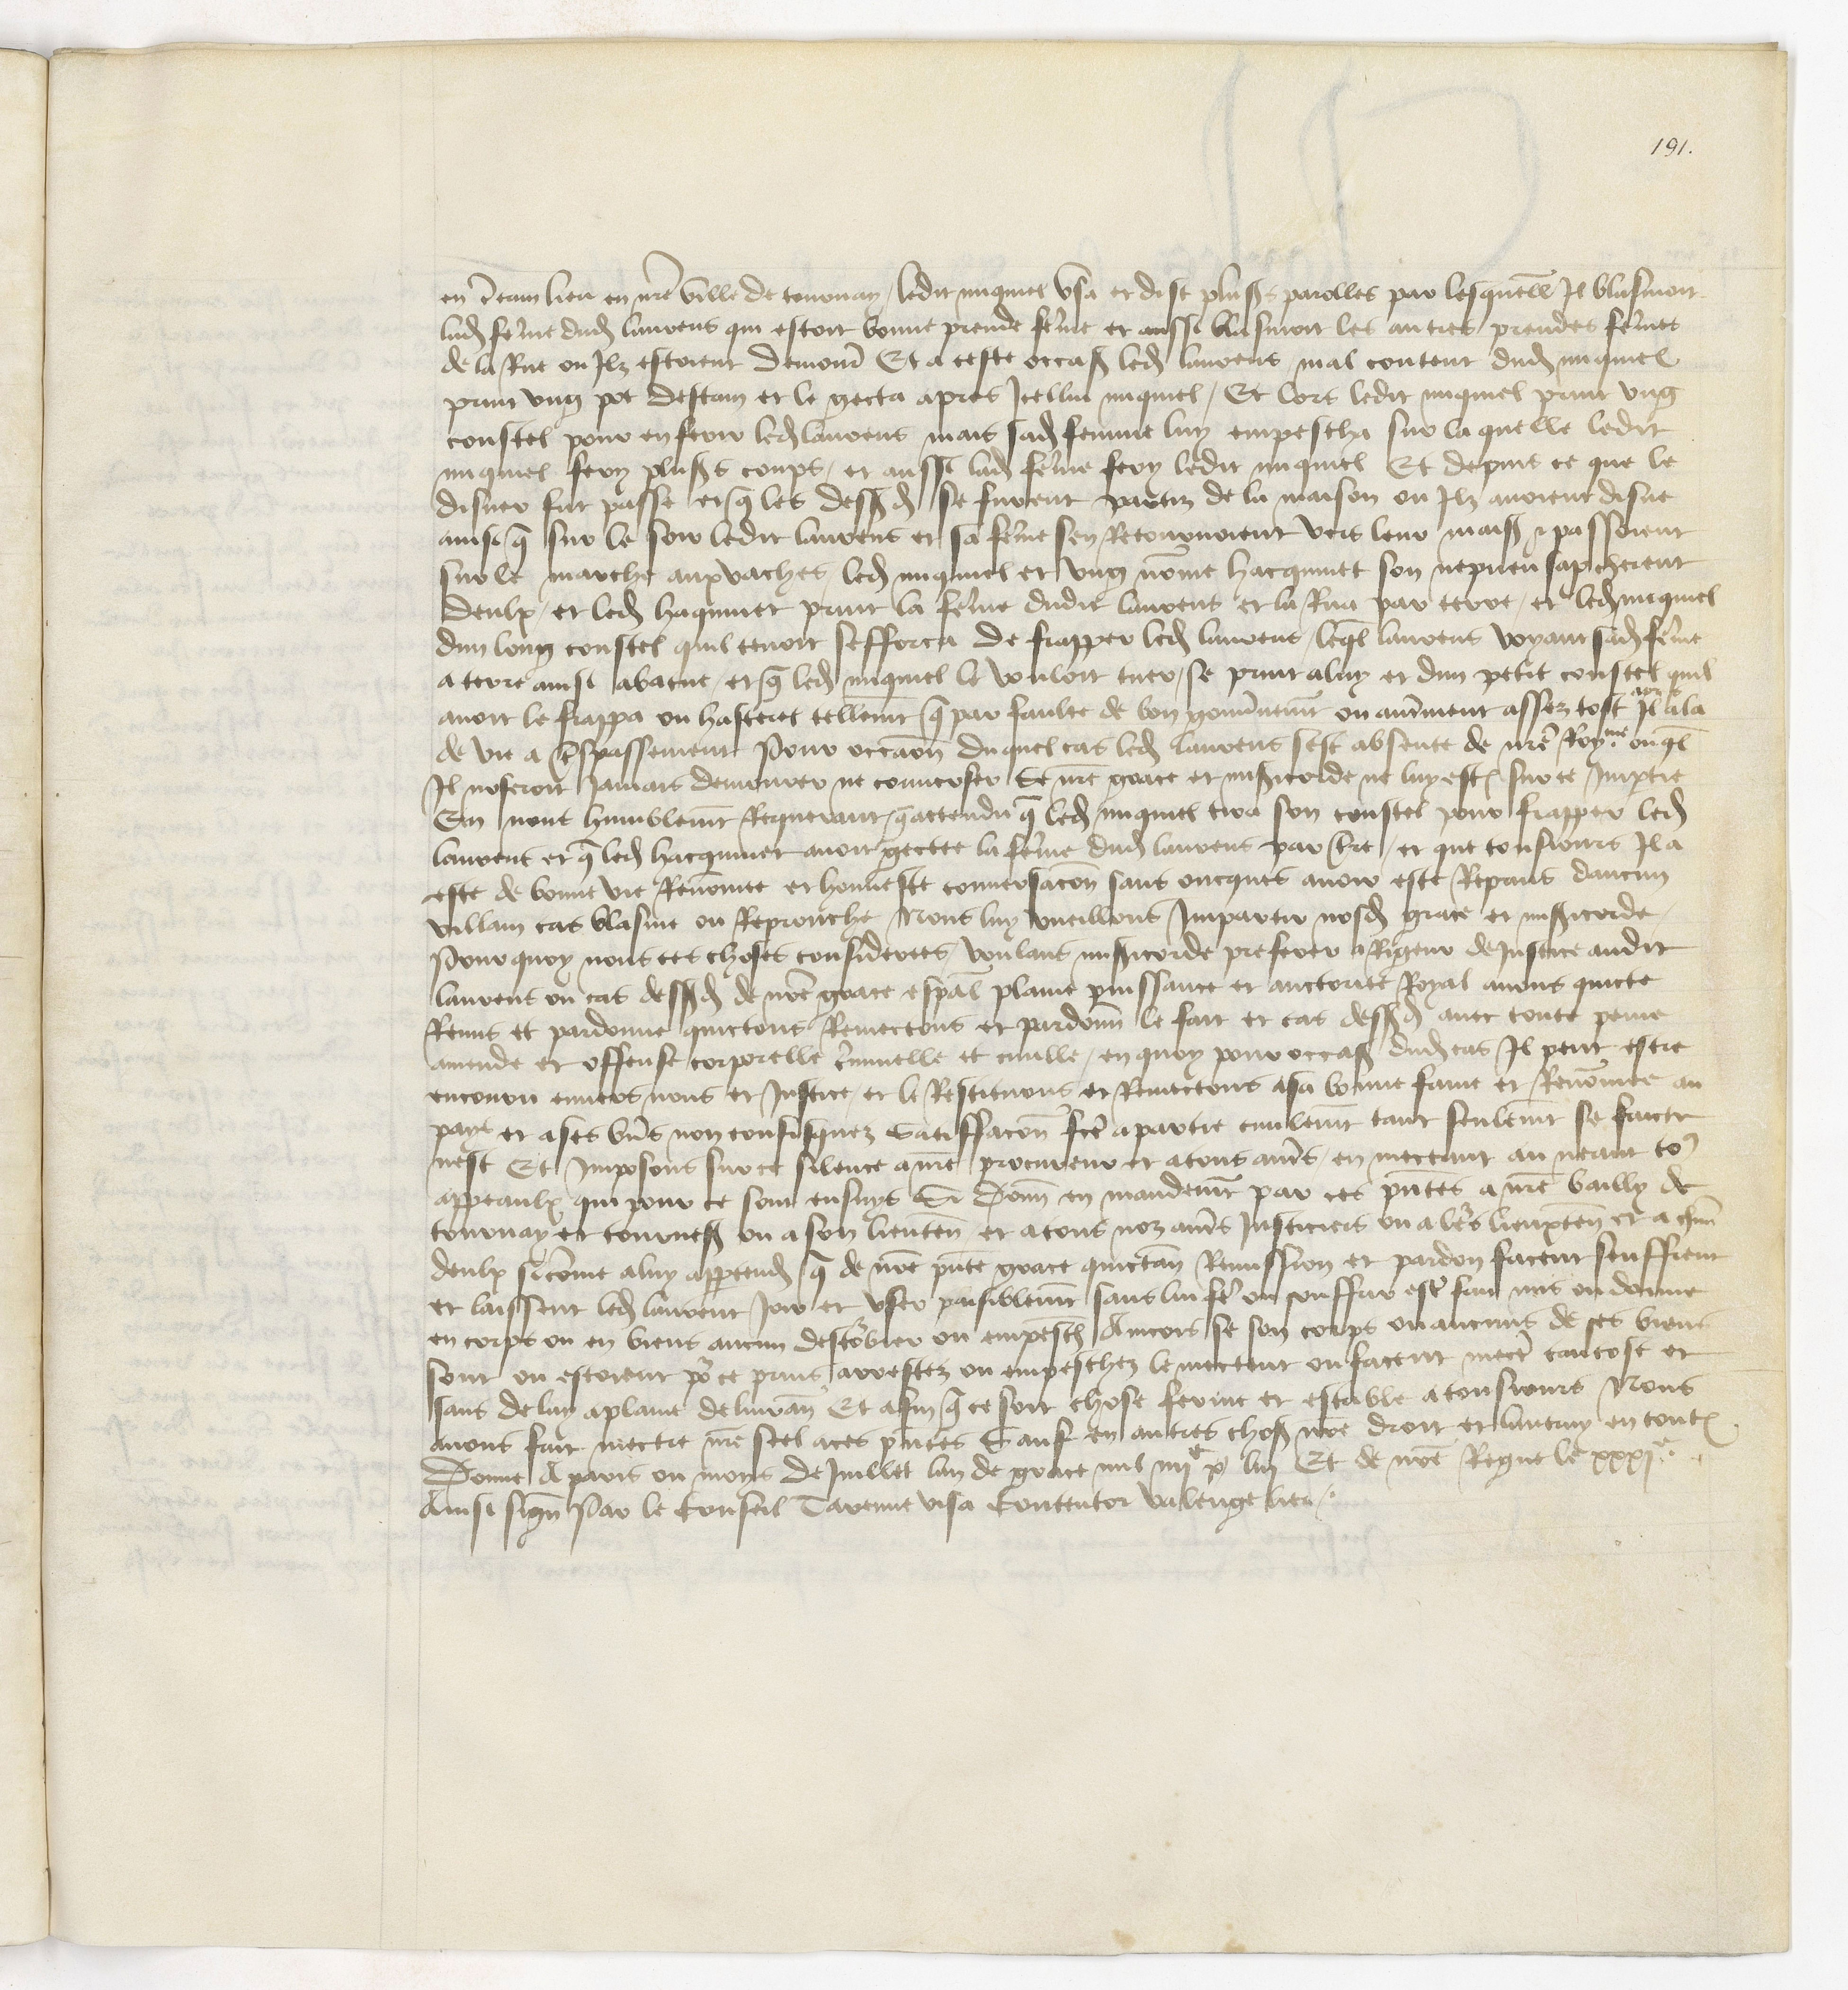 191.
en certain lieu en nre ville de tournay / ledit miquiel usa et dist plusrs parolles par lesquelles Il blasmoit
lad femme dud laurens qui estoit bonne preude femme et aussi blasmoit les autres preudes femmes
de la Rue ou Ilz estoient demourans Et a ceste occasion led laurens mal content dud miquiel
print ung pot destain et le gecta apres Icellui miquiel / Et lors ledit miquiel print ung
coustel pour en ferir led laurens mais sad femme luy empescha sur laquelle ledit
miquiel fery plusrs coups / et aussi lad femme fery ledit miquiel Et depuis ce que le
disner fut passe et q les dessusd se furent partiz de la maison ou Ilz avoient disne
ainsi q sur le soir ledit laurens et sa femme sen Retournoient vers leur maison & passoient
sur le marche aux vaches / led miquiel et ung nomme hacquinet son nepveu sapcherent
deulx / et led haquinet print la femme dudit laurens et la Rua par terre / et led miquiel
dun long coustel quil tenoit sefforca de frapper led laurens / leql laurens voyant sad femme
a terre ainsi abatue / et q led miquiel le vouloit tuer / se print a luy et dun petit coustel quil
avoit le frappa ou hasterel tellemt q par faulte de bon gouvernemt ou autrement assez tost apres Il ala
de vie a trespassement Pour occaon duquel cas led laurens sest absente de nre Royme ouql
Il noseroit Jamais demourer ne converser Se nre grace et misericorde ne luy est sur ce Impartie
En nous humblemt Requerant / q attendu q led miquiel tira son coustel pour frapper led
laurens et q led hacquinet avoit gectee la femme dud laurens par terre / et que tousiours Il a
este de bonne vie Renommee et honneste conversacon sans oncques avoir este Repris daucun
villain cas blasme ou Reprouche Nous luy vueillons Impartir nosd grace et misericorde /
Pourquoy nous ces choses considerees / voulans misericorde preferer a Rigueur de Justice audit
laurens ou cas dessusd de nre grace espal plaine puissance et auctorite Royal avons quicte
Remis et pardonne quictons Remectons et pardonns le fait et cas dessusd avec toute peine
amende et offense corporelle criminelle et civille / en quoy pour occasion dud cas Il peut estre
encouru envers nous et Justice / et le Restituons et Remectons a sa bonne fame et Renommee au
pays et a ses biens non confisquez Satisfacon fce a partie civilemt tant seulemt se faicte
nest Et Imposons sur ce silence a nre procureur et a tous autres / en mectant au neant tous
appeaulx qui pour ce sont ensuys Si donns en mandemt par ces pntes a nre bailly de
tournay et tournesis ou a son lieuten et a tous noz autres Justiciers ou a leurs lieuxten et a chun
deulx si comme a luy appartendra / q de nre pnte grace quictance Remission et pardon facent seuffrent
et laissent led laurent Joir et user paisiblemt sans lui fe ou souffrir estre fait mis ou donne
en corps ou en biens aucun destourbier ou empesch Aincois se son corps ou aucuns de ses biens
sont ou estoient pour ce prins arrestez ou empeschez le mectent ou facent mectre tantost et
sans delay a plaine delivrance Et afin q ce soit chose ferme et estable a tousiours Nous
avons fait mectre nre seel a ces pntes Sauf en autres choses nre droit et lautruy en toutes
Donne A paris ou mois de Juillet lan de grace mil iiiic & liii Et de nre Regne le xxxie
Ainsi signe Par le Conseil Tareme visa Contentor Valengelier /.